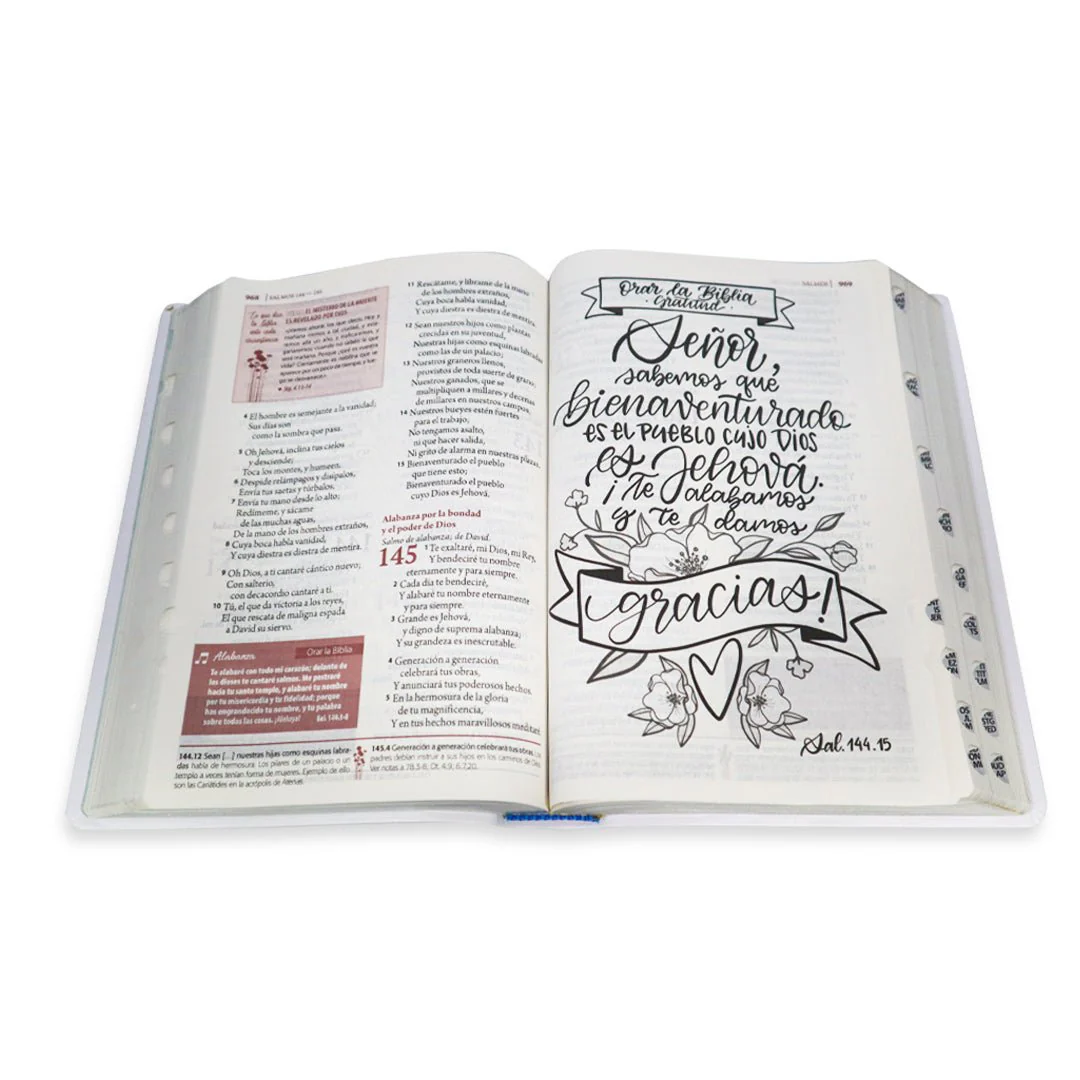 968 | SALMOS 144 — 145
EL MISTERIO DE LA MUERTE
ES REVELADO POR DIOS
4 El hombre es semejante a la vanidad;
Sus días son
como la sombra que pasa.
5 Oh Jehová, inclina tus cielos
y desciende;
Toca los montes, y humeen.
6 Despide relámpagos y disípalos,
Envía tus saetas y túrbalos.
7 Envía tu mano desde lo alto;
Redímeme, y sácame
de las muchas aguas,
De la mano de los hombres extraños,
8 Cuya boca habla vanidad,
Y cuya diestra es diestra de mentira.
9 Oh Dios, a ti cantaré cántico nuevo;
Con salterio,
con decacordio cantaré a ti.
10 Tú, el que da victoria a los reyes,
El que rescata de maligna espada
a David su siervo.
Alabanza Orar la Biblia
Te alabaré con todo mi corazón; delante de
los dioses te cantaré salmos. Me postraré
hacia tu santo templo, y alabaré tu nombre
por tu misericordia y tu fidelidad; porque
has engrandecido tu nombre, y tu palabra
sobre todas las cosas. ¡Aleluya!
144.12 Sean [...] nuestras hijas como esquinas labra-
das habla de hermosura. Los pilares de un palacio o un
templo a veces tenían forma de mujeres. Ejemplo de ello
son las Cariátides en la acrópolis de Atenas.
11 Rescátame, y líbrame de la mano
de los hombres extraños,
Cuya boca habla vanidad,
Y cuya diestra es diestra de mentira.
12 Sean nuestros hijos como plantas
crecidas en su juventud,
Nuestras hijas como esquinas labradas
como las de un palacio;
13 Nuestros graneros llenos,
provistos de toda suerte de grano;
Nuestros ganados, que se
multipliquen a millares y decenas
de millares en nuestros campos;
14 Nuestros bueyes estén fuertes
para el trabajo;
No tengamos asalto,
ni que hacer salida,
Ni grito de alarma en nuestras plazas.
15 Bienaventurado el pueblo
que tiene esto;
Bienaventurado el pueblo
cuyo Dios es Jehová.
Alabanza por la bondad
y el poder de Dios
Salmo de alabanza; de David.
145 1 Te exaltaré, mi Dios, mi Rey,
Y bendeciré tu nombre
eternamente y para siempre.
2 Cada día te bendeciré,
Y alabaré tu nombre eternamente
y para siempre.
3 Grande es Jehová,
y digno de suprema alabanza;
Y su grandeza es inescrutable.
4 Generación a generación
celebrará tus obras,
Y anunciará tus poderosos hechos.
5 En la hermosura de la gloria
de tu magnificencia,
Y en tus hechos maravillosos meditaré.
145.4 Generación a generación celebrará tus obras. Los
padres debían instruir a sus hijos en los caminos de Dios.
Ver notas a 78.3-8; Dt. 4.9; 6.7,20.
SALMOS | 969
Orar la Biblia
Gratitud
Señor,
sabemos que
bienaventurado
ES EL PUEBLO CUJO DIOS
es Jehová.
¡Te alabamos
y te damos
gracias!
Sal. 144.15